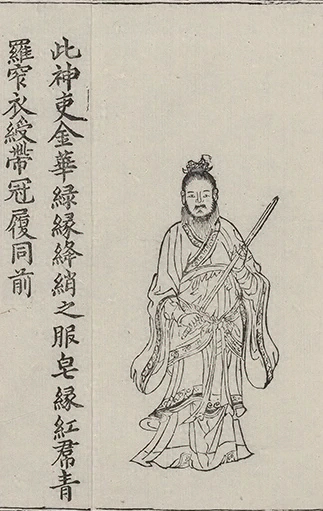 此神吏金華緑縁絳綃之服皂縁紅帬青
羅窄衣綬帶冠履同前